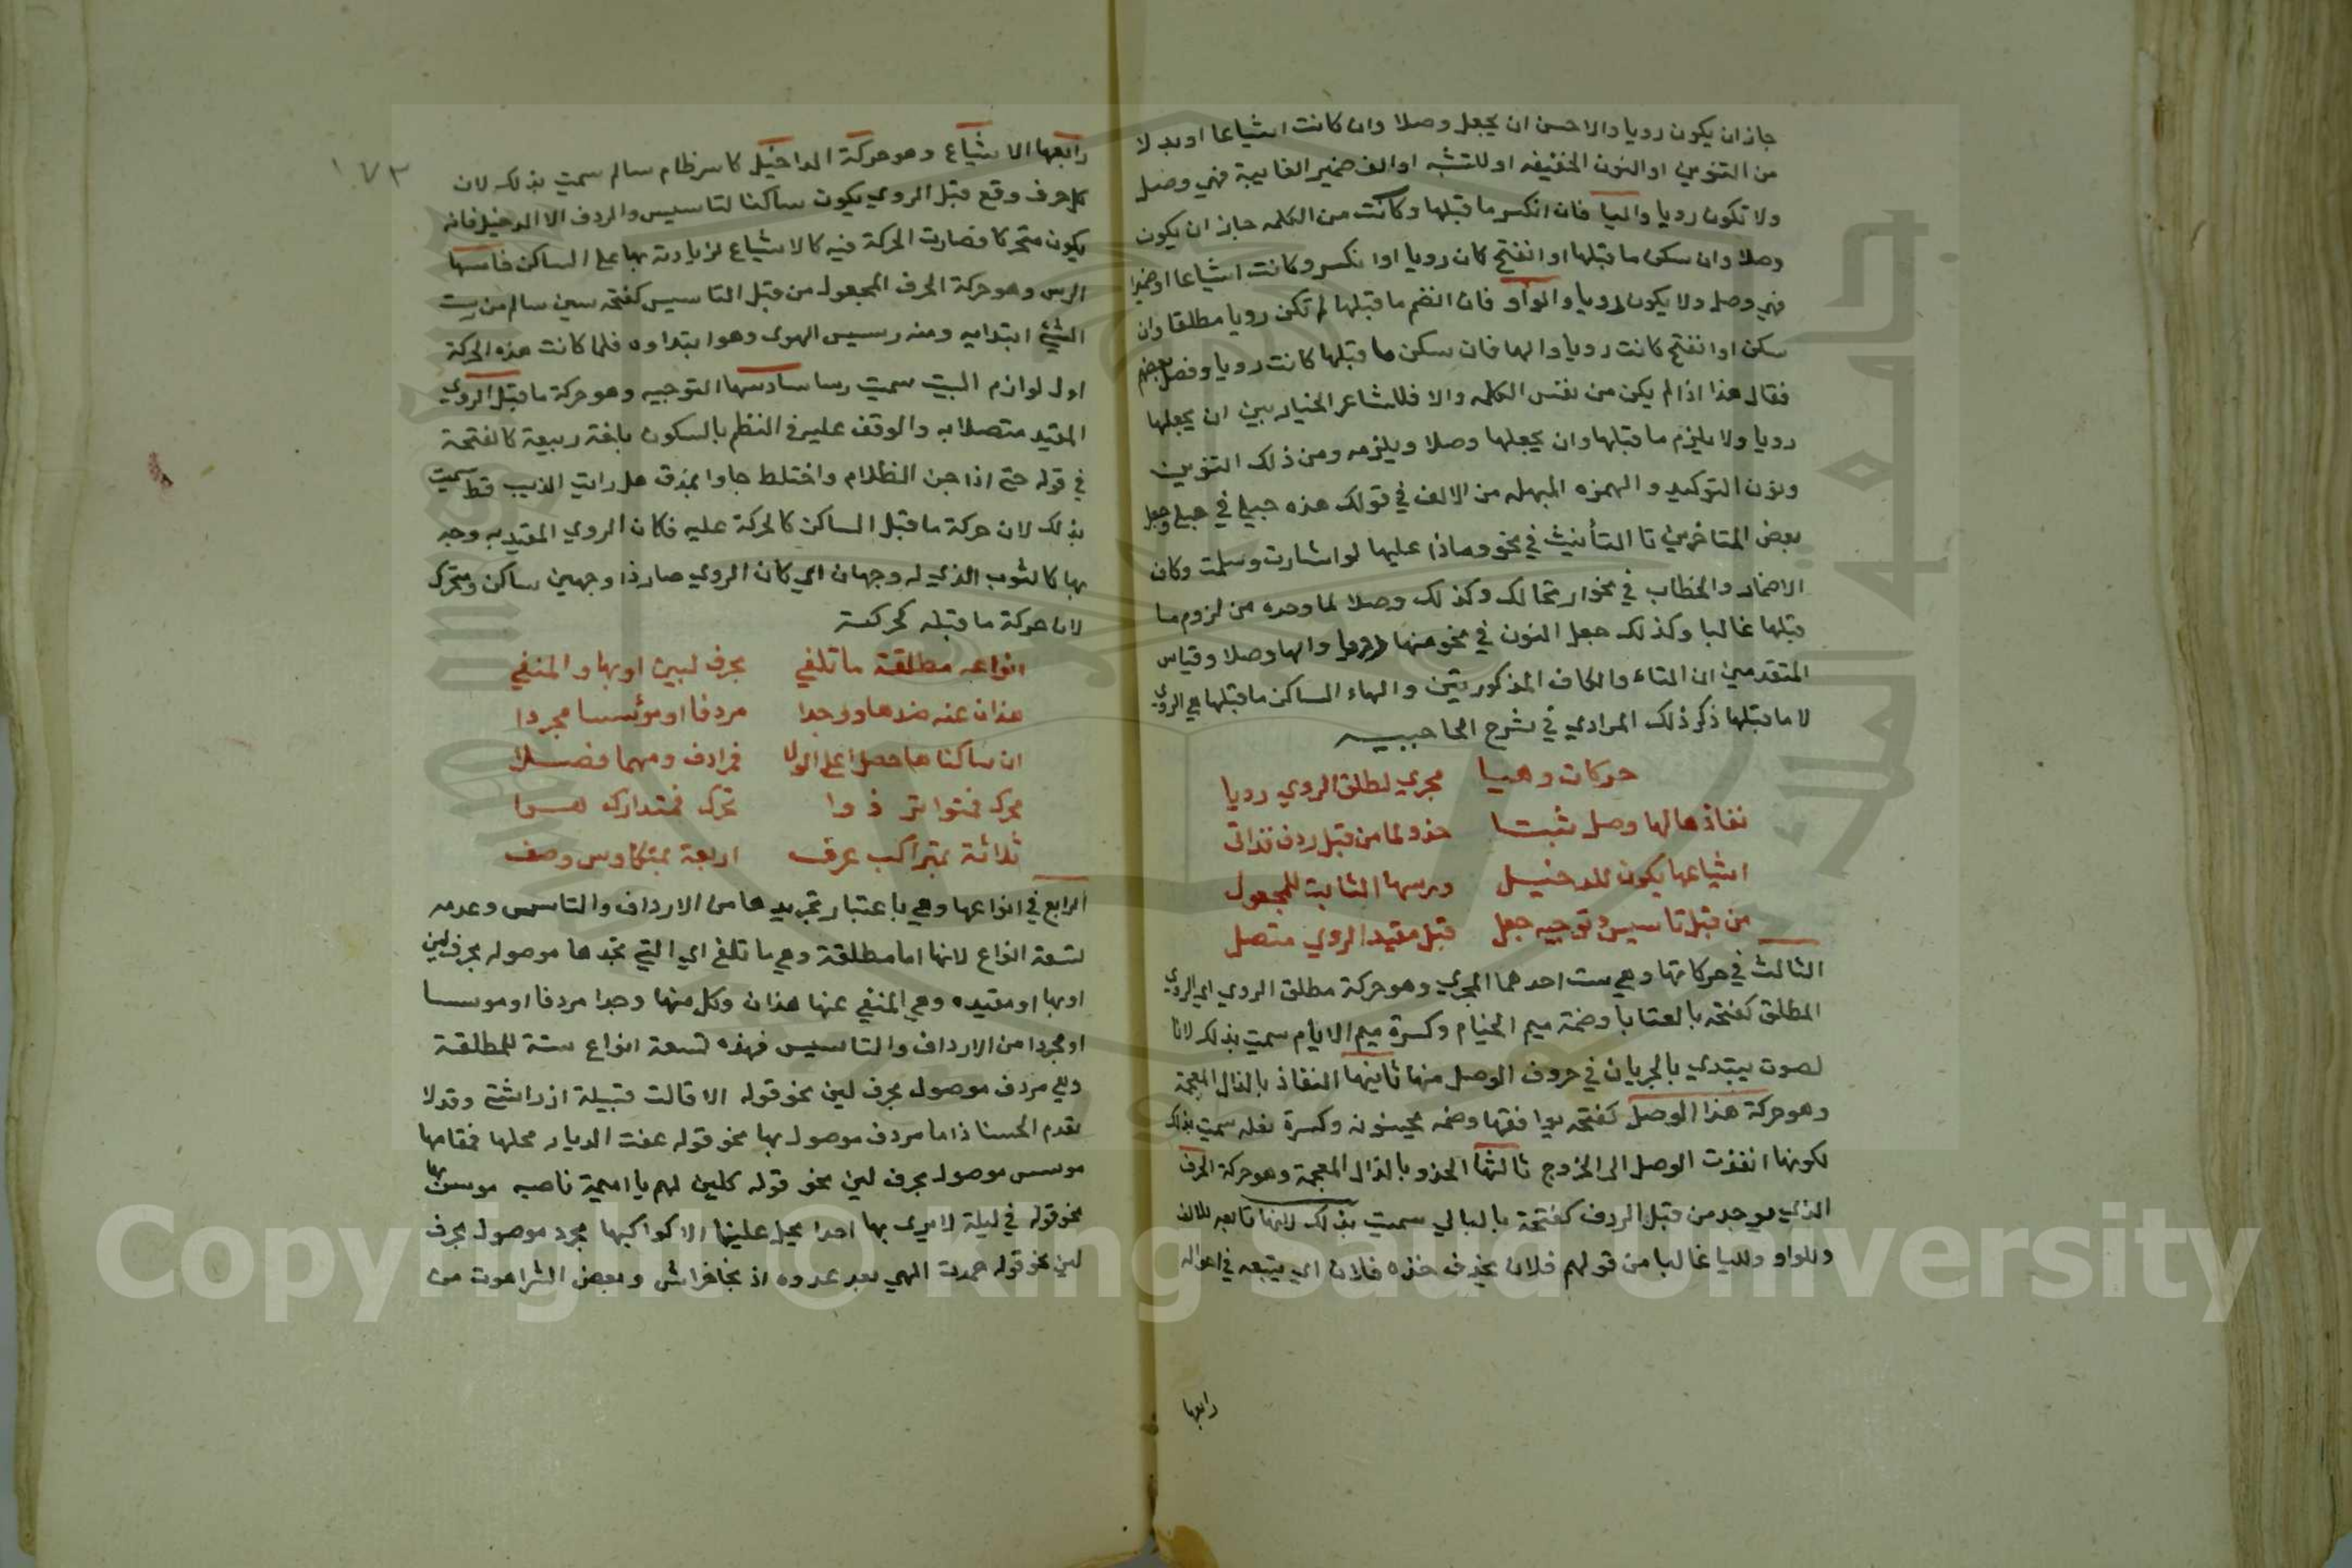 جاز ان يكون رويا والاحسن ان يجعل وصلا وان كانت اشباعا او بدلا
من التنوين او النون الخفيفه او للتثنيه او الف ضمير الغايبة فهي وصل
ولا تكون رويا واليا فان انكسر ما قبلها وكانت من الكلمه جاز ان يكون
وصلا وان سكن ما قبلها او انفتح كان رويا او انكسر وكانت اشباعا او ضميرا
فهي وصل ولا يكون رويا والواو فان انضم ما قبلها لم تكن رويا مطلقا وان
سكن او انفتح كانت رويا والها فان سكن ما قبلها كانت رويا وفصل بعضهم
فقال هذا اذا لم يكن من نفس الكلمه والا فللشاعر الخيار بين ان يجعلها
رويا ولا يلزم ما قبلها وان يجعلها وصلا ويلزمه ومن ذلك التنوين
ونون التوكيد والهمزه المبدله من الالف في قولك هذه حبلى في حبلى وجعل
بعض المتاخرين تا التأنيث في نحو وماذا عليها لو اشارت وسلمت وكان
الاضمار والخطاب في نحو ارتحالك وكذلك وصلا لما وجده من لزوم ما
قبلها غالبا وكذلك جعل النون في نحو منها والها وصلا وقياس
المتقدمين ان التاء والكاف المذكورتين والهاء الساكن ما قبلها هي الروي
لا ما قبلها ذكر ذلك المرادي في شرح الحاجبيه
حركات وهيا مجري لطلق الروي رويا
نفاذها لها وصل ثبتا حذو لما من قبل ردف قد اتى
اشباعها يكون للدخيل ورسها الثابت للمجعول
من قبل تاسيس وتوجيه جعل قبل مقيد الروي متصل
الثالث في حركاتها وهي ست احدهما المجري وهو حركة مطلق الروي اي الروي
المطلق كفتحه با لعتابا وضمة ميم الخيام وكسرة ميم الايام سميت بذلك لانا
لصوت يبتدي بالجريان في حروف الوصل منها ثانيها النفاذ بالذال المعجمة
وهو حركة هذا الوصل كفتحه يوافقها وضمه وكسرة نعله سميت بذلك
لكونها انفذت الوصل الى الخروج ثالثها الحذو بالذال المعجمة وهو حركة الحرف
الذي يوجد من قبل الردف كفتحة با لبالي سميت بذلك لانها تابعه للالف
وللواو ولليا غالبا من قولهم فلان يحذف حذه فلان اي يتبعه في احواله
رابعها
١٧٣
رابعها الاشباع وهو حركة الداخيل كاسر ظام سالم سميت بذلك لان
كل حرف وقع قبل الروي يكون ساكنا لتاسيس والردف الا الدخيل فانه
يكون متحركا فصارت الحركة فيه كالاشباع لزيادته بها على الساكن خامسها
الرس وهو حركة الحرف المجعول من قبل التاسيس كفتحه سين سالم من رست
الشيئ ابتدايه ومنه رسيس الهوى وهو ابتداوه فلما كانت هذه الحركة
اول لوازم البيت سميت رسا سادسها التوجيه وهو حركة ما قبل الروي
المقيد متصلا به والوقف عليه في النظم بالسكون بلغة ربيعة كالفتحة
في قوله حتى اذا جن الظلام واختلط جاوا بمذق هل رايت الذيب قط سميت
بذلك لان حركة ما قبل الساكن كالحركة عليه فكان الروي المقيد به وجه
بها كالثوب الذي له وجهان اي كان الروي صار ذا وجهين ساكن ومتحرك
لان حركة ما قبله كحركته
انواعه مطلقة ما تلفي بحرف لين او بها والمنفي
هذان عنه ضدها ووجدا مردفا او مؤسسا مجردا
ان ساكناها حصلا على الولا فمرادف ومهما فصلا
محرك فمتواتر ذوا تحرك فمتدارك
ثلاثة بمتراكب عرف اربعة بمتكاوس وصف
الرابع في انواعها وهي باعتبار تجريدها من الارداف والتاسيس وعدمه
لتسعة انواع لانها اما مطلقة وهي ما تلفي اي التي تجدها موصوله بحرف لين
او بها او مقيده وهي المنفي عنها هذان وكل منها وجدا مردفا او موسسا
او مجردا من الارداف والتاسيس فهذه تسعة انواع ستة للمطلقة
وهي مردف موصول بحرف لين نحو قوله الا قالت قتيلة اذ راتني وقد لا
تعدم الحسنا ذاما مردف موصول بها نحو قوله عفت الديار محلها فمقامها
موسس موصول بحرف لين نحو قوله كلين لهم يا اميمة ناصبه موسس بها
نحو قوله في ليلة لا يرى بها احدا يحل علينا الا كواكبها مجرد موصول بحرف
لين نحو قوله حمدت الهي بعد عروه اذ نجا خراش وبعض الشر اهون من